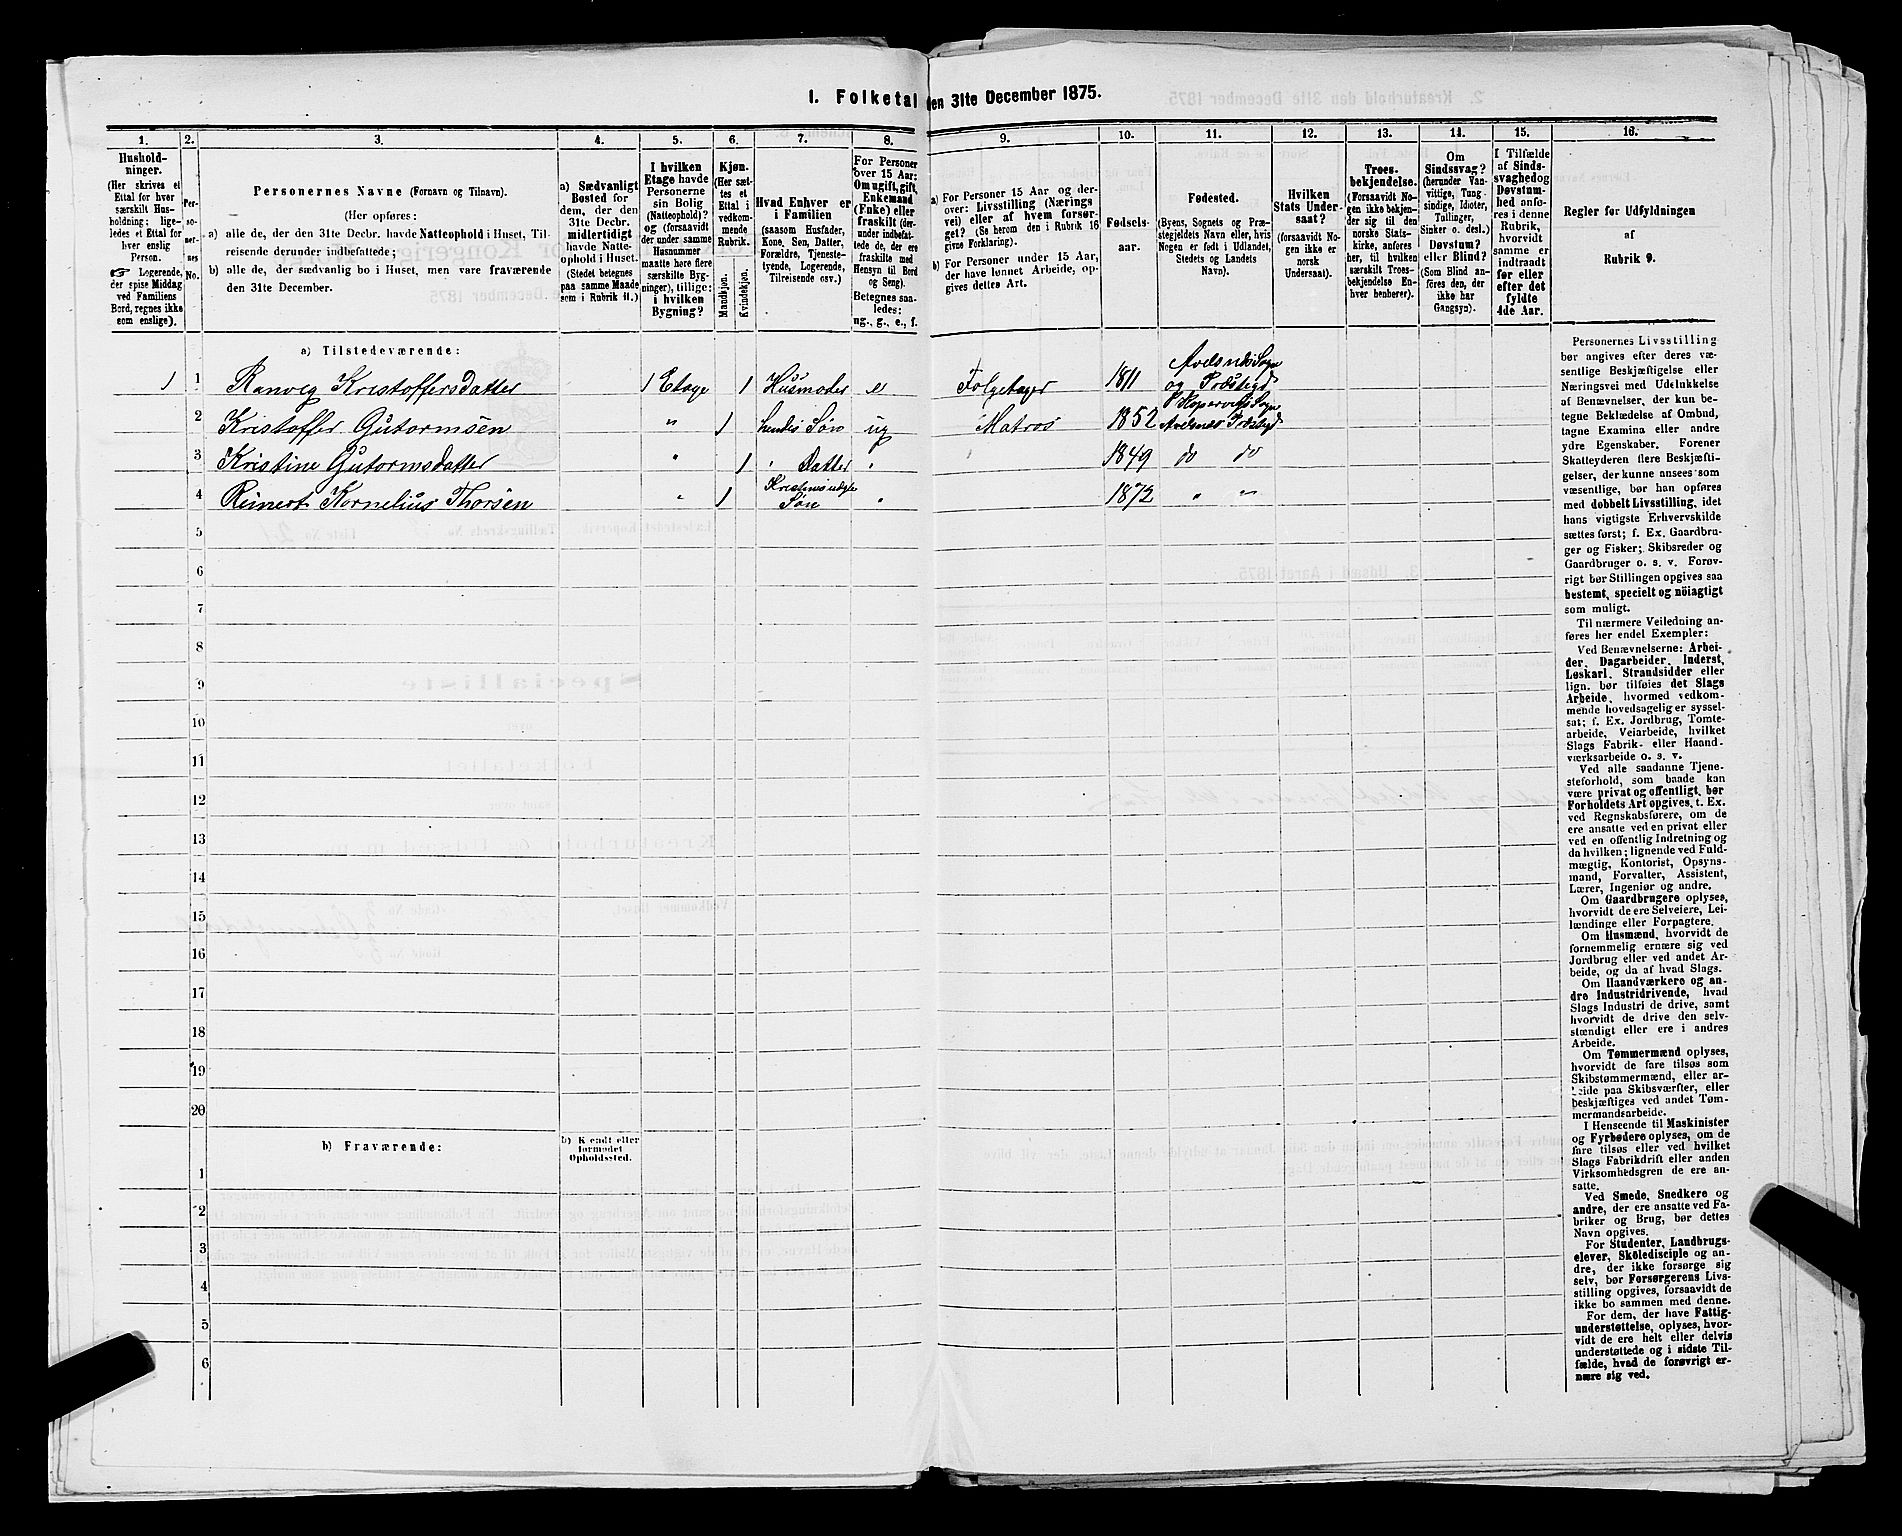 1. Folketal den 31te December 1875.
1. 2. 3. 4. 5. 6. 7. 8. 9. 10. 11. 12. 13. 14. 15. 16.
Hushold-
ninger.
(Her skrives et
Ettal for hver
særskilt Hus-
holdning; lige-
ledes et Ettal for
hver enslig
Person.
☞ Logerende,
der spise Middag
ved Familiens
Bord, regnes ikke
som enslige).
Per-
so-
ner-
nes
No.
Personernes Navne (Fornavn og Tilnavn).
(Her opføres:
a) alle de, der den 31te Decbr. havde Natteophold i Huset, Til-
reisende derunder indbefattede;
b) alle de, der sædvanlig bo i Huset, men vare fraværende
den 31te December.
a) Sædvanligt
Bosted for
dem, der den
31te Decbr.
midlertidigt
havde Natte-
ophold i Huset.
(Stedet betegnes
paa samme Maade
som i Rubrik 11.)
I hvilken
Etage havde
Personerne
sin Bolig
(Natteophold)?
og (forsaavidt
der under samme
Husnummer
maatte høre flere
særskilte Byg-
ninger), tillige:
i hvilken
Bygning?
Kjøn.
(Her sæt-
tes et
Ettal i
vedkom-
mende
Rubrik.
Mandkjøn.
Kvindekjøn.
Hvad Enhver er
i Familien
(saasom Husfader,
Kone, Søn, Datter,
Forældre, Tjeneste-
tyende, Logerende,
Tilreisende osv.)
For Personer
over 15 Aar:
Om ugift, gift,
Enkemand
(Enke) eller
fraskilt (der-
under indbefat-
tede de, der ere
fraskilte med
Hensyn til Bord
og Seng).
Betegnes saa-
ledes:
ug., g., e., f.
a) For Personer 15 Aar og der-
over: Livsstilling (Nærings
vei) eller af hvem forsør-
get? (Se herom den i Rubrik 16
givne Forklaring).
b) For Personer under 15 Aar,
der have lønnet Arbeide, op-
gives dettes Art.
Fødsels-
aar.
Fødested.
(Byens, Sognets og Præ-
stegjeldets Navn eller, hvis
Nogen er født i Udlandet,
Stedets og Landets
Navn).
Hvilken
Stats Under-
saat?
(forsaavidt No-
gen ikke er
norsk
Undersaat).
Troes-
bekjendelse.
(Forsaavidt No-
gen ikke bekjen-
der sig til den
norske Stats-
kirke, anføres
her, til hvilken
særskilt Troes-
bekjendelse En-
hver henhører).
Om
Sindssvag?
(herunder Van-
vittige, Tung-
sindige, Idioter,
Tullinger,
Sinker o. desl.)
Døvstum?
eller Blind?
(Som Blind an-
føres den, der
ikke har
Gangsyn).
I Tilfælde
af Sinds-
svaghed og
Døvstum-
hed anfø-
res i denne
Rubrik,
hvorvidt
samme er
indtraadt
før eller
efter det
fyldte
4de Aar.
Regler før Udfyldningen
af
Rubrik 9.
a) Tilstedeværende:
1 1 Ranveig KristoffersDatter 1 Etage 1 Husmoder e Folgetager 1811 Avelsnds Sogn
og Præstegd
2 Kristoffer Gutormsen " 1 hendes Søn ug Matros 1852 Kopervig Sogn
Avelsnes Præstgd
3 Kristine Gutormsdatter " 1 " Datter " 1849 do do
4 Reinert Kornelius Thorsen " 1 Kristines uægte
Søn " 1872 " "
5
6
7
8
9
10
11
12
13
14
15
16
17
18
19
20
b) Fraværende: b) Kjendt eller
formodet
Opholdssted.
1
2
3
4
5
6
Personernes Livsstilling
bør angives efter deres væ-
sentlige Beskjæftigelse eller
Næringsvei med Udelukkelse
af Benævnelser, der kun be-
tegne Beklædelse af Ombud,
tagne Examina eller andre
ydre Egenskaber. Forener
Skatteyderen flere Beskjæfti-
gelser, der kunne ansees som
væsentlige, bør han opføres
med dobbelt Livsstilling, idet
hans vigtigste Erhvervskilde
sættes først; f. Ex. Gaardbru-
ger og Fisker; Skibsreder og
Gaardbruger o. s. v. Forøv-
rigt bør Stillingen opgives saa
bestemt, specielt og nöiagtigt
som muligt.
Til nærmere Veiledning an-
føres her endel Exempler:
Ved Benævnelserne: Arbei-
der, Dagarbeider, Inderst,
Løskarl, Strandsidder eller
lign. bør tilføies det Slags
Arbeide, hvormed vedkom-
mende hovedsagelig er syssel-
sat; f. Ex. Jordbrug, Tomte-
arbeide, Veiarbeide, hvilket
Slags Fabrik- eller Haand-
værksarbeide o. s. v.
Ved alle saadanne Tjene-
steforhold, som baade kan
være privat og offentligt, bør
Forholdets Art opgives, t. Ex.
ved Regnskabsførere, om de
ere ansatte ved en privat eller
ved en offentlig Indretning og
da hvilken; lignende ved Fuld-
mægtig, Kontorist, Opsyns-
mand, Forvalter, Assistent,
Lærer, Ingeniør og andre.
Om Gaardbrugere oplyses,
hvorvidt de ere Selveiere, Lei-
lændinge eller Forpagtere.
Om Husmænd, hvorvidt de
fornemmelig ernære sig ved
Jordbrug eller ved andet Ar-
beide, og da af hvad Slags.
Om Haandværkere og an-
dre Industridrivende, hvad
Slags Industri de drive, samt
hvorvidt de drive den selv-
stændigt eller ere i andres
Arbeide.
Om Tømmermænd oplyses,
hvorvidt de fare tilsøs som
Skibstømmermænd, eller ar-
beide paa Skibsværfter, eller
beskjæftiges ved andet Tøm-
mermandsarbeide.
I Henseende til Maskinister
og Fyrbødere oplyses, om de
fare tilsøs eller ved hvilket
Slags Fabrikdrift eller anden
Virksomhedsgren de ere an-
satte.
Ved Smede, Snedkere og
andre, der ere ansatte ved Fa-
briker og Brug, bør dettes
Navn opgives.
For Studenter, Landbrugs-
elever, Skoledisciple og an-
dre, der ikke forsørge sig
selv, bør Forsørgerens Livs-
stilling opgives, forsaavidt de
ikke bo sammen med denne.
For dem, der have Fattig-
understøttelse, oplyses, hvor-
vidt de ere helt eller delvis
understøttede og i sidste Til-
fælde, hvad de forøvrigt er-
nære sig ved.